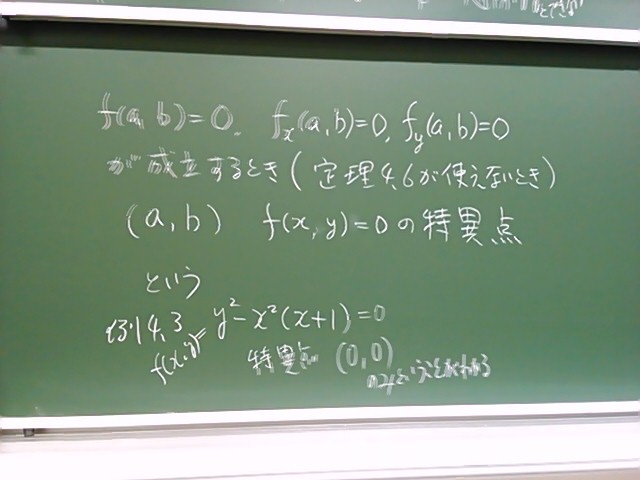 とできる
f(a, b)=0, fx(a, b)=0, fy(a, b)=0
が成立するとき(定理4.6が使えないとき)
(a, b) f(x, y)=0の特異点
という
例4.3 f(x,y)= y²-x²(x+1)=0
特異点 (0,0)
のみということがわかる